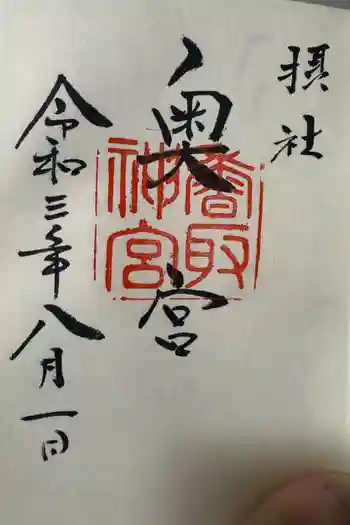 摂社
奥宮
香取神宮
令和三年八月一日